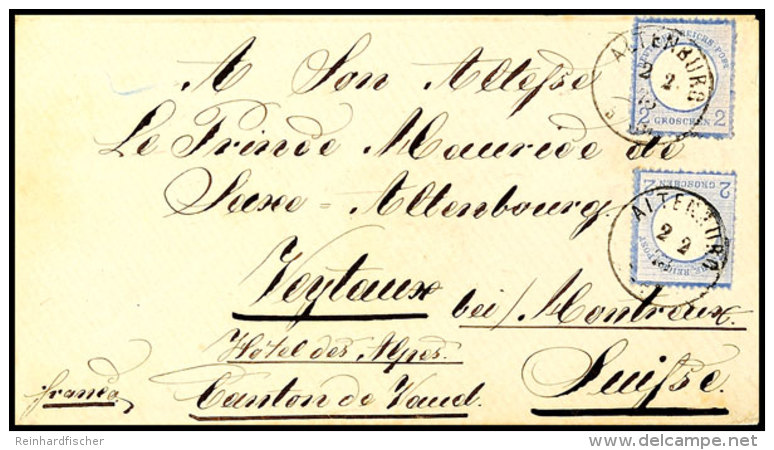 A Son Altesse
Le Prince Maurice de
Saxe-Altenbourg.
Veytaux bei/Montreux.
Hôtel des Alpes.
Canton de Vaud.
Suisse.
franco
ALTENBURG
2 GROSCHEN 2
2 GROSCHEN 2
ALTENBURG
2 2
Reinhardfischer
delcampe.net